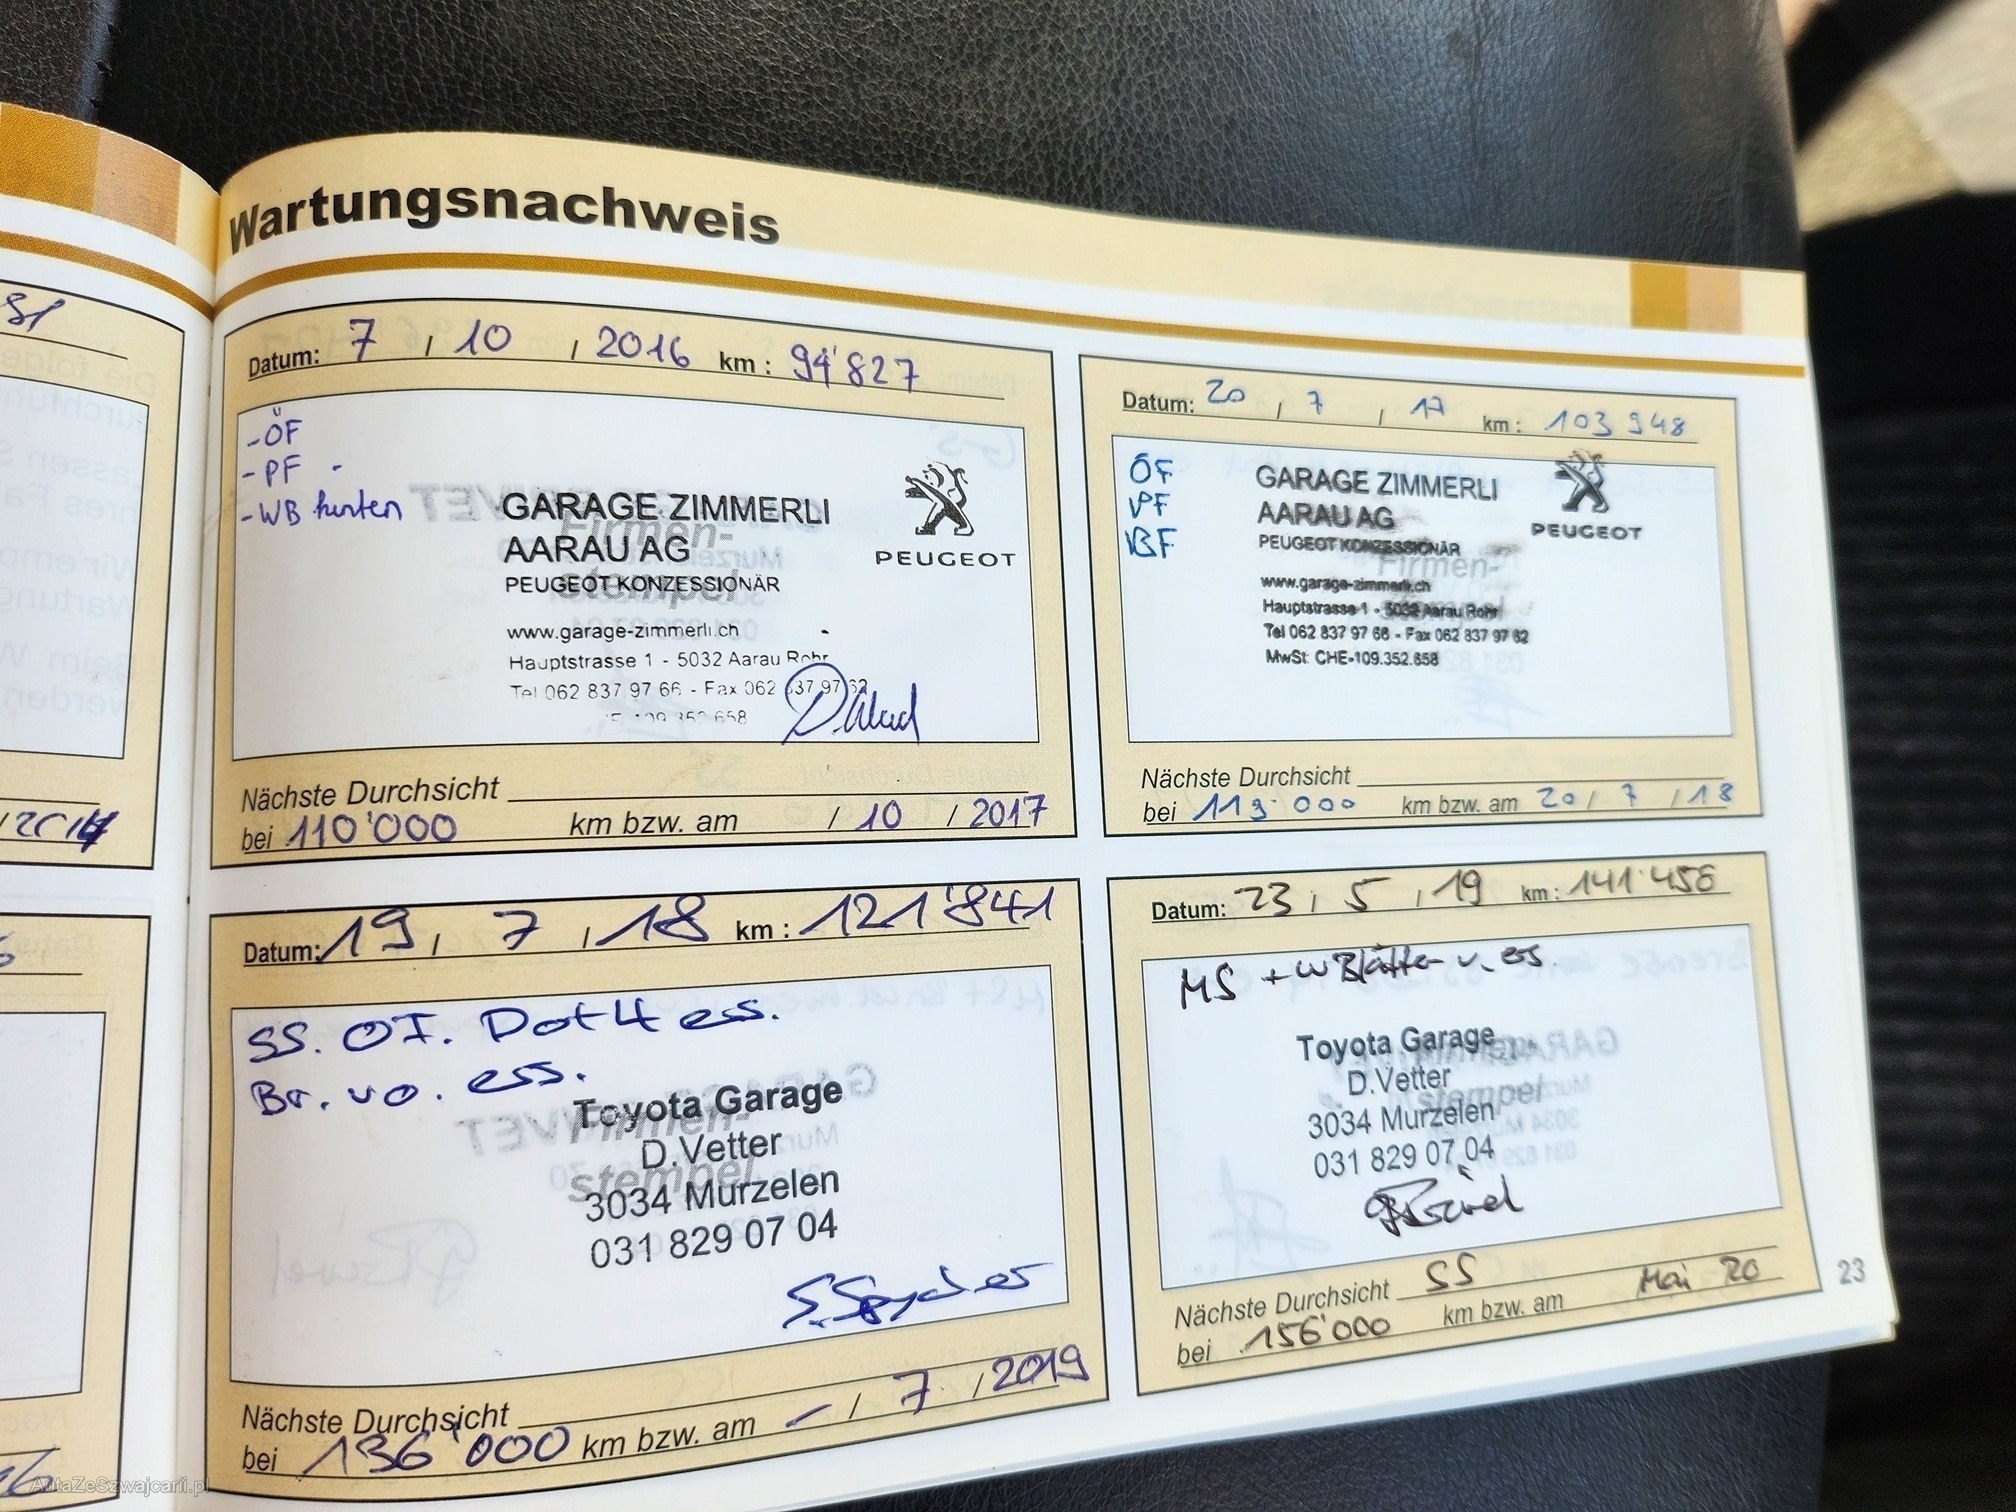 Wartungsnachweis
Datum: 7 / 10 / 2016 km : 94'827
- ÖF
- PF -
- WB hinten
GARAGE ZIMMERLI
AARAU AG
PEUGEOT KONZESSIONÄR
www.garage-zimmerli.ch
Hauptstrasse 1 - 5032 Aarau Rohr
Tel 062 837 97 66 - Fax 062 837 97 62
109.352.658
PEUGEOT
Firmen-
stempel
Nächste Durchsicht
bei 110'000 km bzw. am / 10 / 2017
Datum: 20 / 7 / 17 km : 103 948
ÖF
PF
BF
GARAGE ZIMMERLI
AARAU AG
PEUGEOT KONZESSIONÄR
www.garage-zimmerli.ch
Hauptstrasse 1 - 5032 Aarau Rohr
Tel 062 837 97 66 - Fax 062 837 97 62
MwSt: CHE-109.352.658
PEUGEOT
Firmen-
stempel
Nächste Durchsicht
bei 119'000 km bzw. am 20 / 7 / 18
Datum: 19 / 7 / 18 km : 121'841
SS. OI. Dot4 ess.
Br. vo. ess.
Toyota Garage
D.Vetter
3034 Murzelen
031 829 07 04
Firmen-
stempel
Nächste Durchsicht
bei 136'000 km bzw. am - / 7 / 2019
Datum: 23 / 5 / 19 km : 141'456
MS + WBlätter v. es.
Toyota Garage
D.Vetter
3034 Murzelen
031 829 07 04
stempel
Nächste Durchsicht SS
bei 156'000 km bzw. am Mai 20
23
AutaZeSzwajcarii.pl